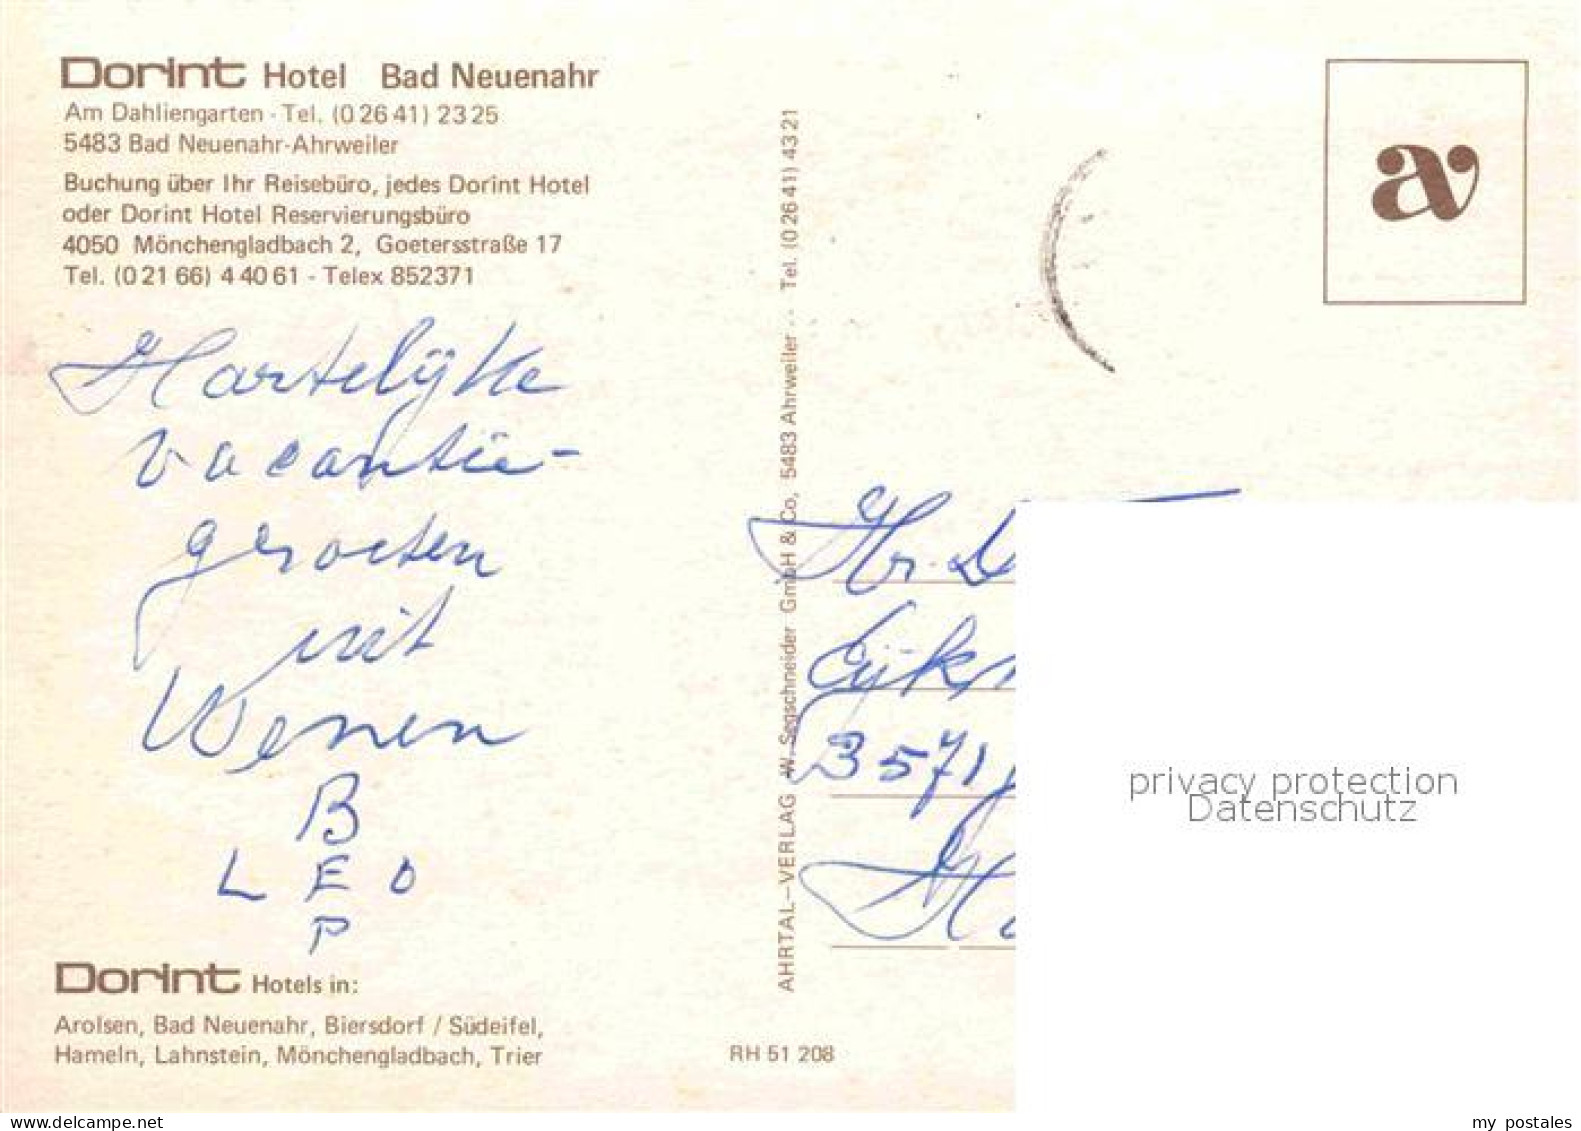 Dorint Hotel Bad Neuenahr
Am Dahliengarten - Tel. (0 26 41) 23 25
5483 Bad Neuenahr-Ahrweiler
Buchung über Ihr Reisebüro, jedes Dorint Hotel
oder Dorint Hotel Reservierungsbüro
4050 Mönchengladbach 2, Goetersstraße 17
Tel. (0 21 66) 4 40 61 - Telex 852371
Hartelijke
vacantie-
groeten
uit
Wenen
B
L E O
P
Dorint Hotels in:
Arolsen, Bad Neuenahr, Biersdorf / Südeifel,
Hameln, Lahnstein, Mönchengladbach, Trier
AHRTAL-VERLAG W. Segschneider GmbH & Co, 5483 Ahrweiler -- Tel. (0 26 41) 43 21
RH 51 208
av
Hr. D
Eijk
3571
privacy protection
Datenschutz
www.delcampe.net
my_postales